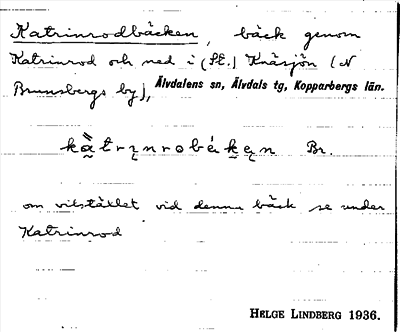 Katrinrodbäcken, bäck genom
Katrinrod och ned i (St.) Knäsjön (N
Brunsbergs by), Älvdalens sn, Älvdals tg, Kopparbergs län.
Br.
om vilstället vid denna bäck se under
Katrinrod
HELGE LINDBERG 1936.